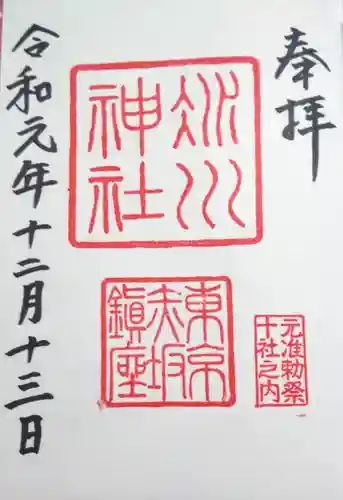 奉拝
氷川
神社
東京
赤坂
鎮座
元准勅祭
十社之内
令和元年十二月十三日